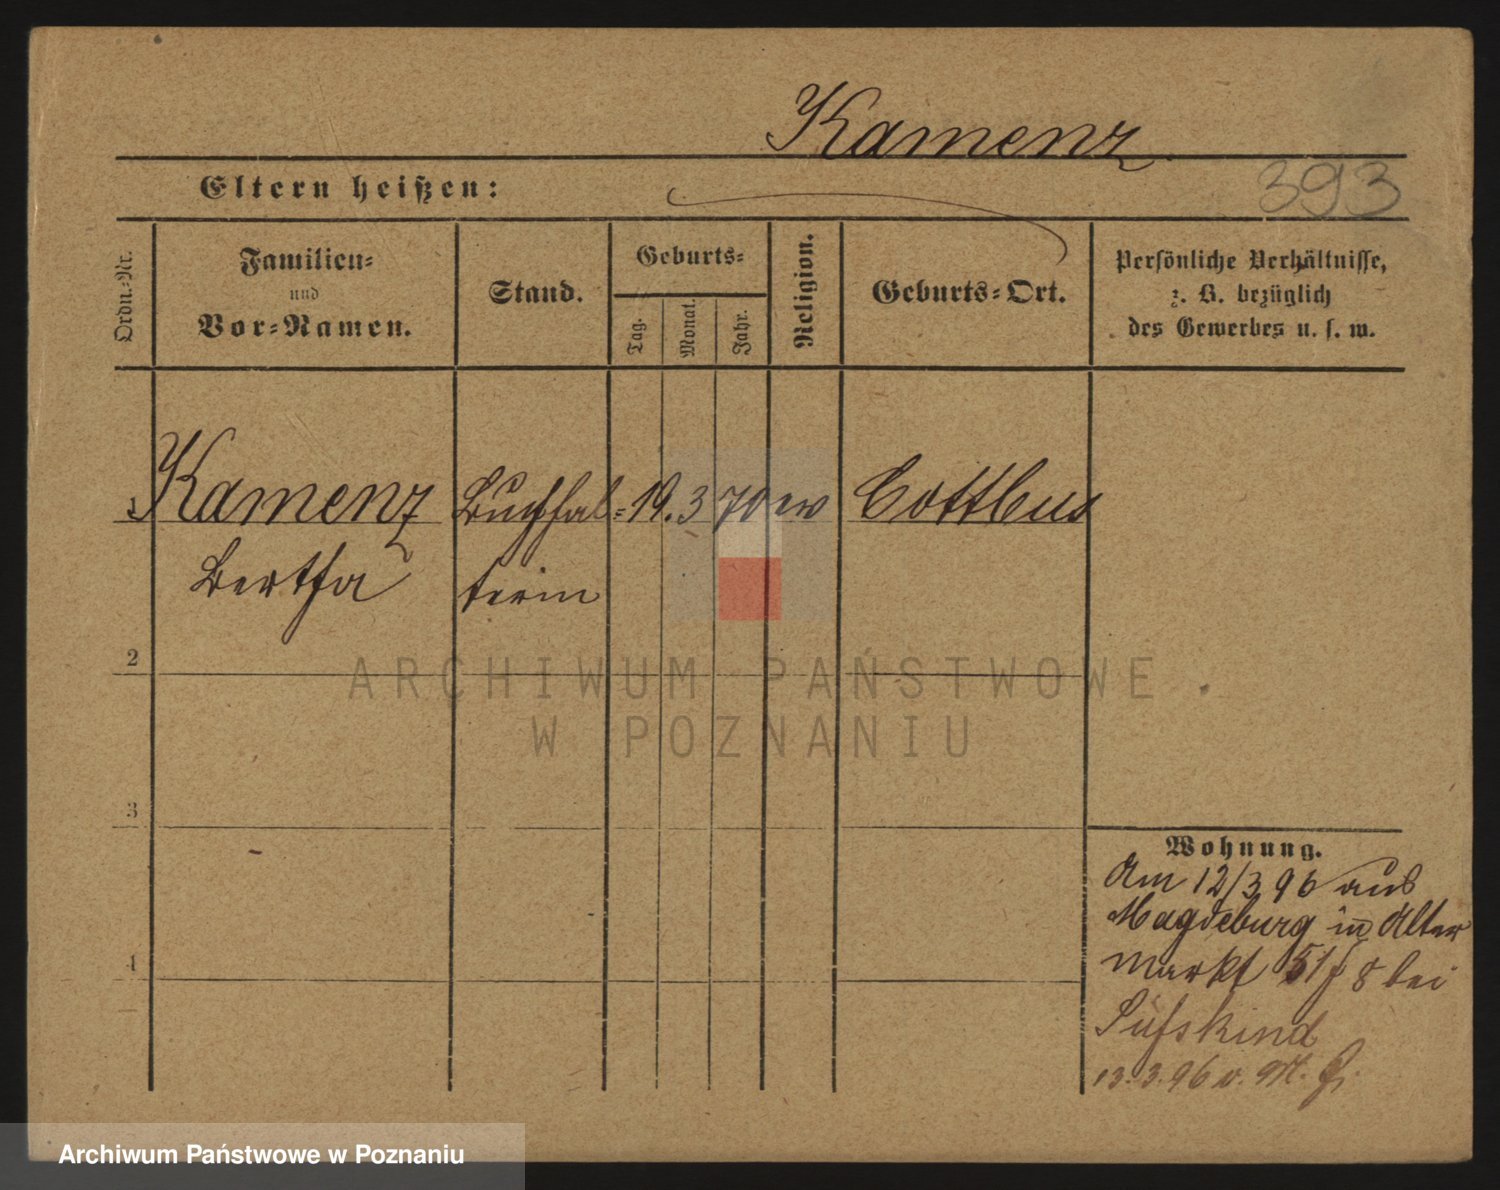 Kamenz
393
Eltern heißen:
Ordn.-Nr.
Familien-
und
Vor-Namen.
Stand.
Geburts-
Tag.
Monat.
Jahr.
Religion.
Geburts-Ort.
Persönliche Verhältnisse,
z. B. bezüglich
des Gewerbes u. s. w.
1 Kamenz Buchhal- 19. 3 70 ev Cottbus
Bertha terin
2
ARCHIWUM PAŃSTWOWE
W POZNANIU
3
Wohnung.
Am 12/3 96 aus
Magdeburg in Alter
Markt 51/ 8 bei
4
Süfskind
13. 3. 96 v. M.
Archiwum Państwowe w Poznaniu